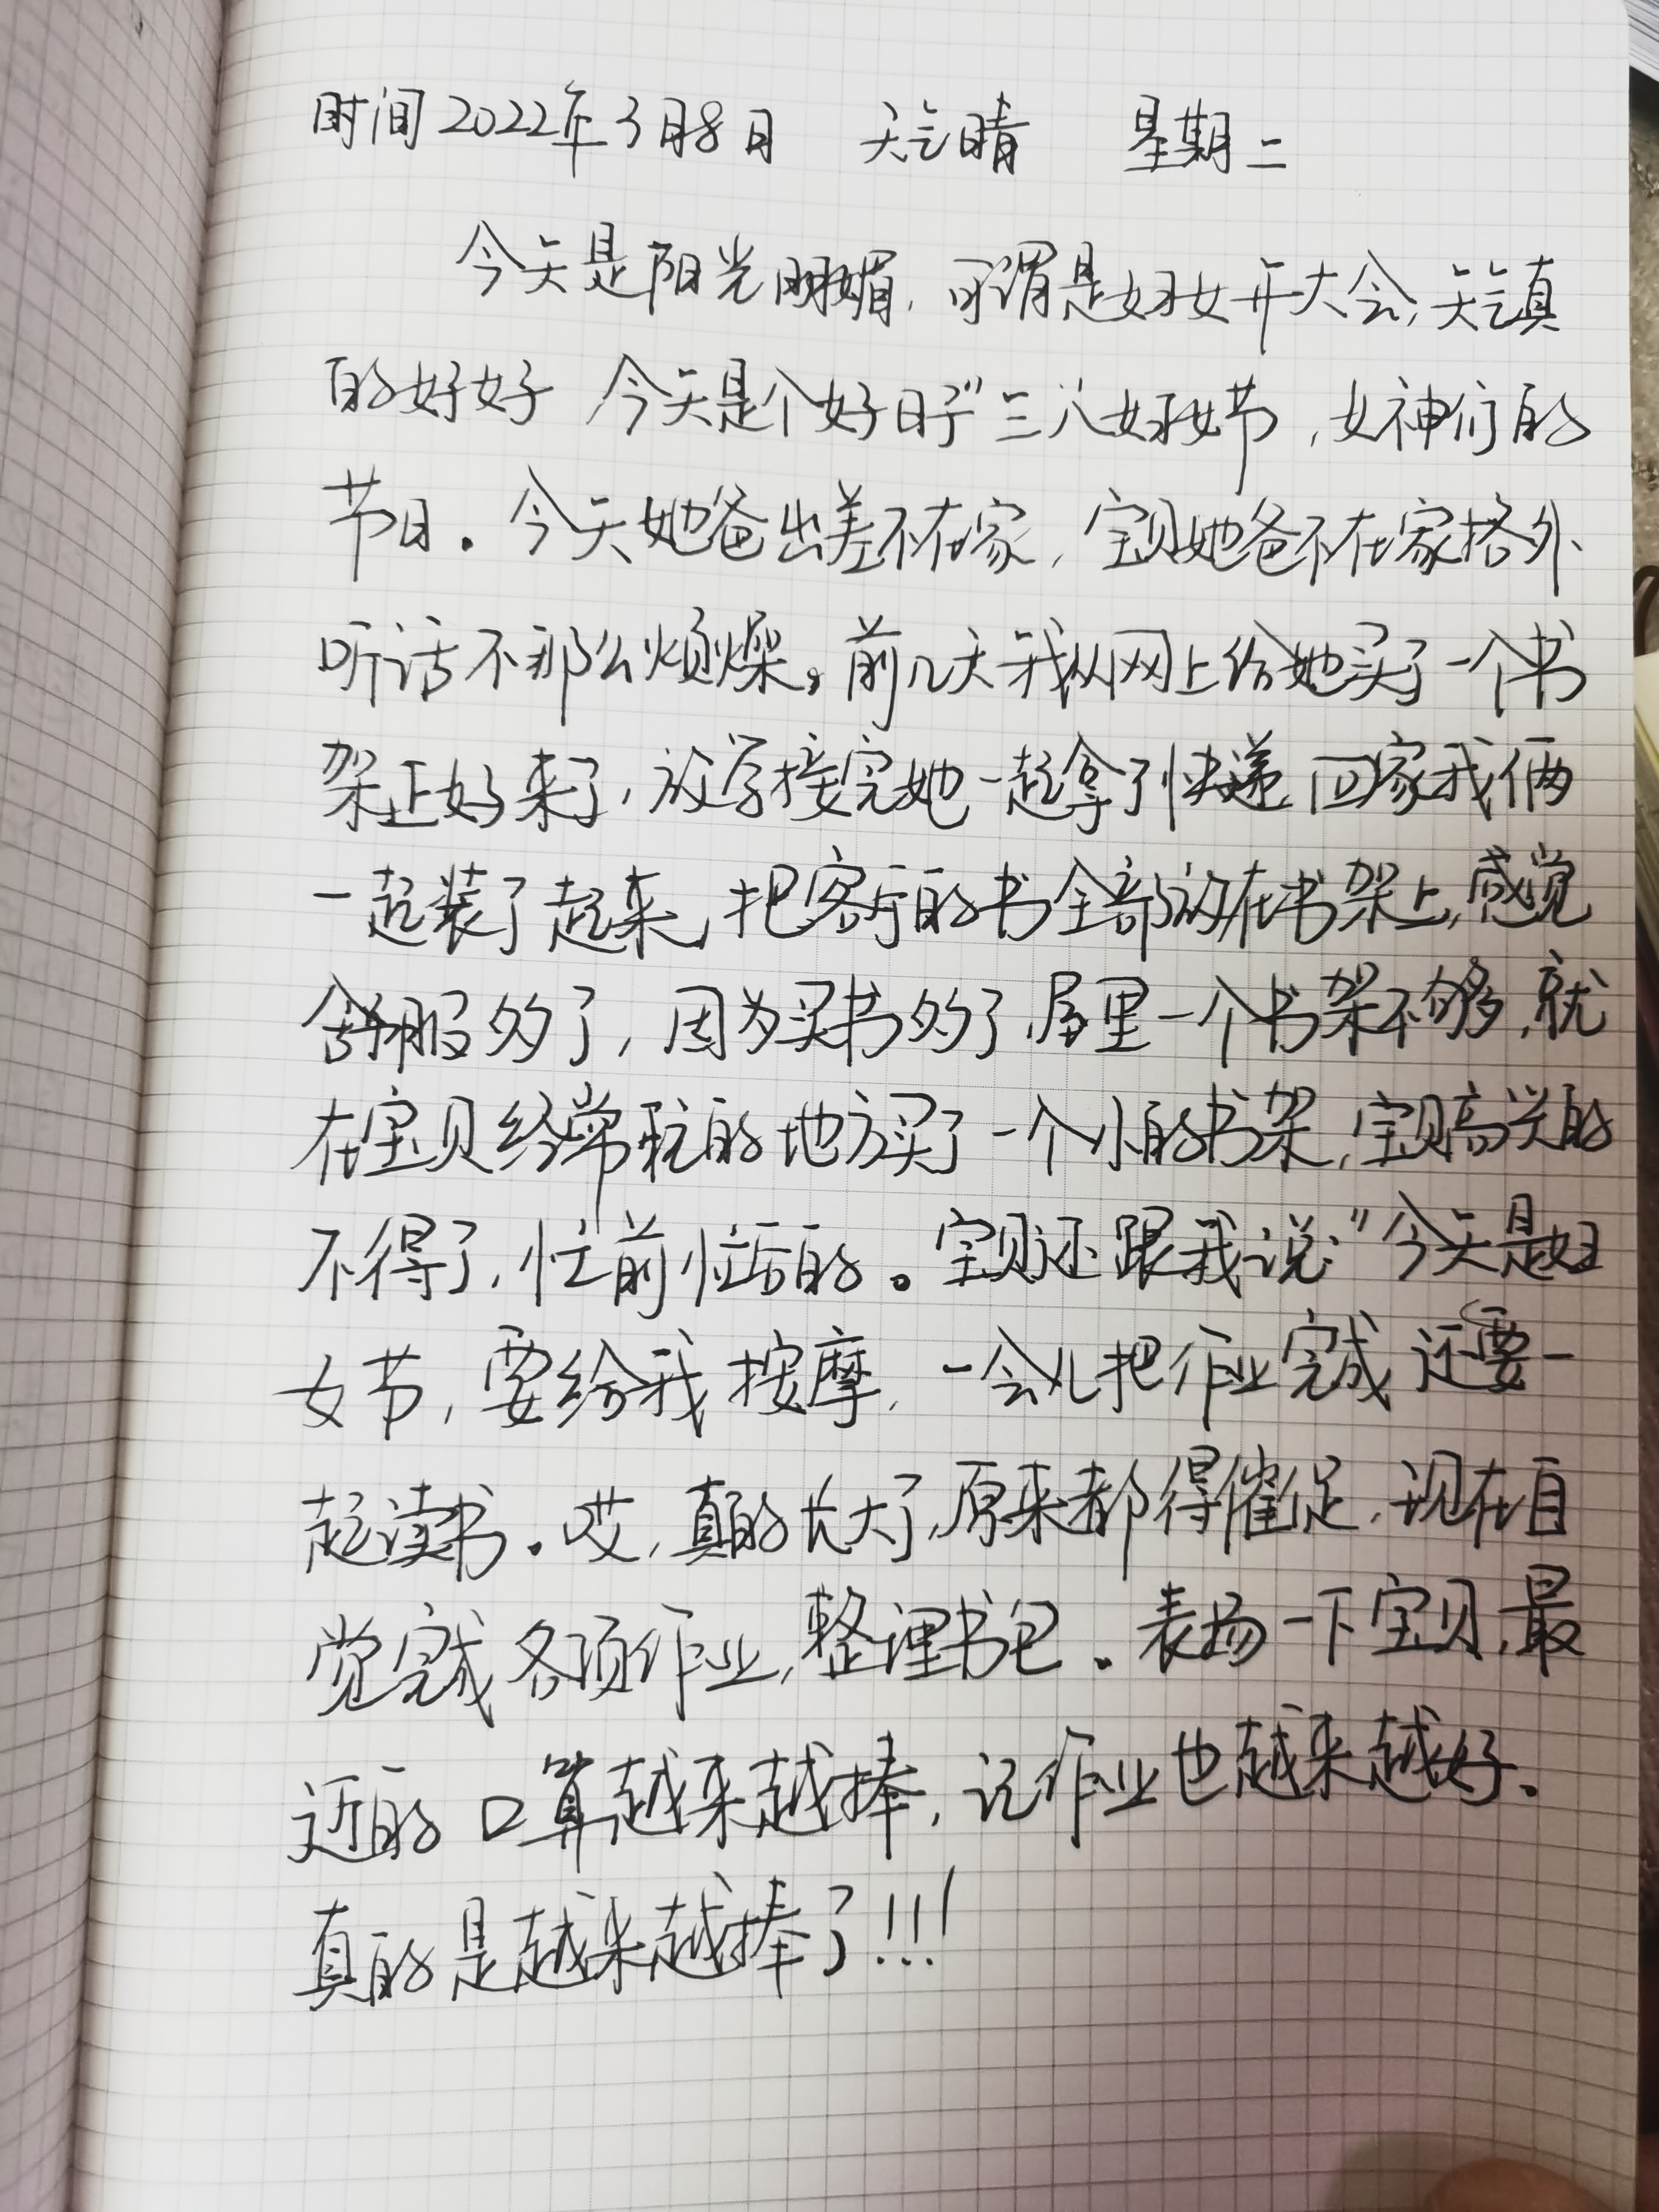 时间2022年3月8日 天气晴 星期二
今天是阳光明媚，可谓是妇女开大会，天气真
的好好 今天是个好日子"三八妇女节，女神们的
节日。今天她爸出差不在家，宝贝她爸不在家格外
听话不那么烦燥。前几天我从网上给她买了一个书
架正好来了，放学接完她一起拿了快递 回家我俩
一起装了起来，把客厅的书全部放在书架上，感觉
舒服多了，因为买书多了，屋里一个书架不够，就
在宝贝经常玩的地方买了一个小的书架，宝贝高兴的
不得了，忙前忙后的。宝贝还跟我说："今天是妇
女节，要给我按摩，一会儿把作业完成 还要一
起读书。哎，真的长大了，原来都得催促，现在自
觉完成各项作业，整理书包。表扬一下宝贝，最
近的 口算越来越棒，记作业也越来越好、
真的是越来越棒了!!!